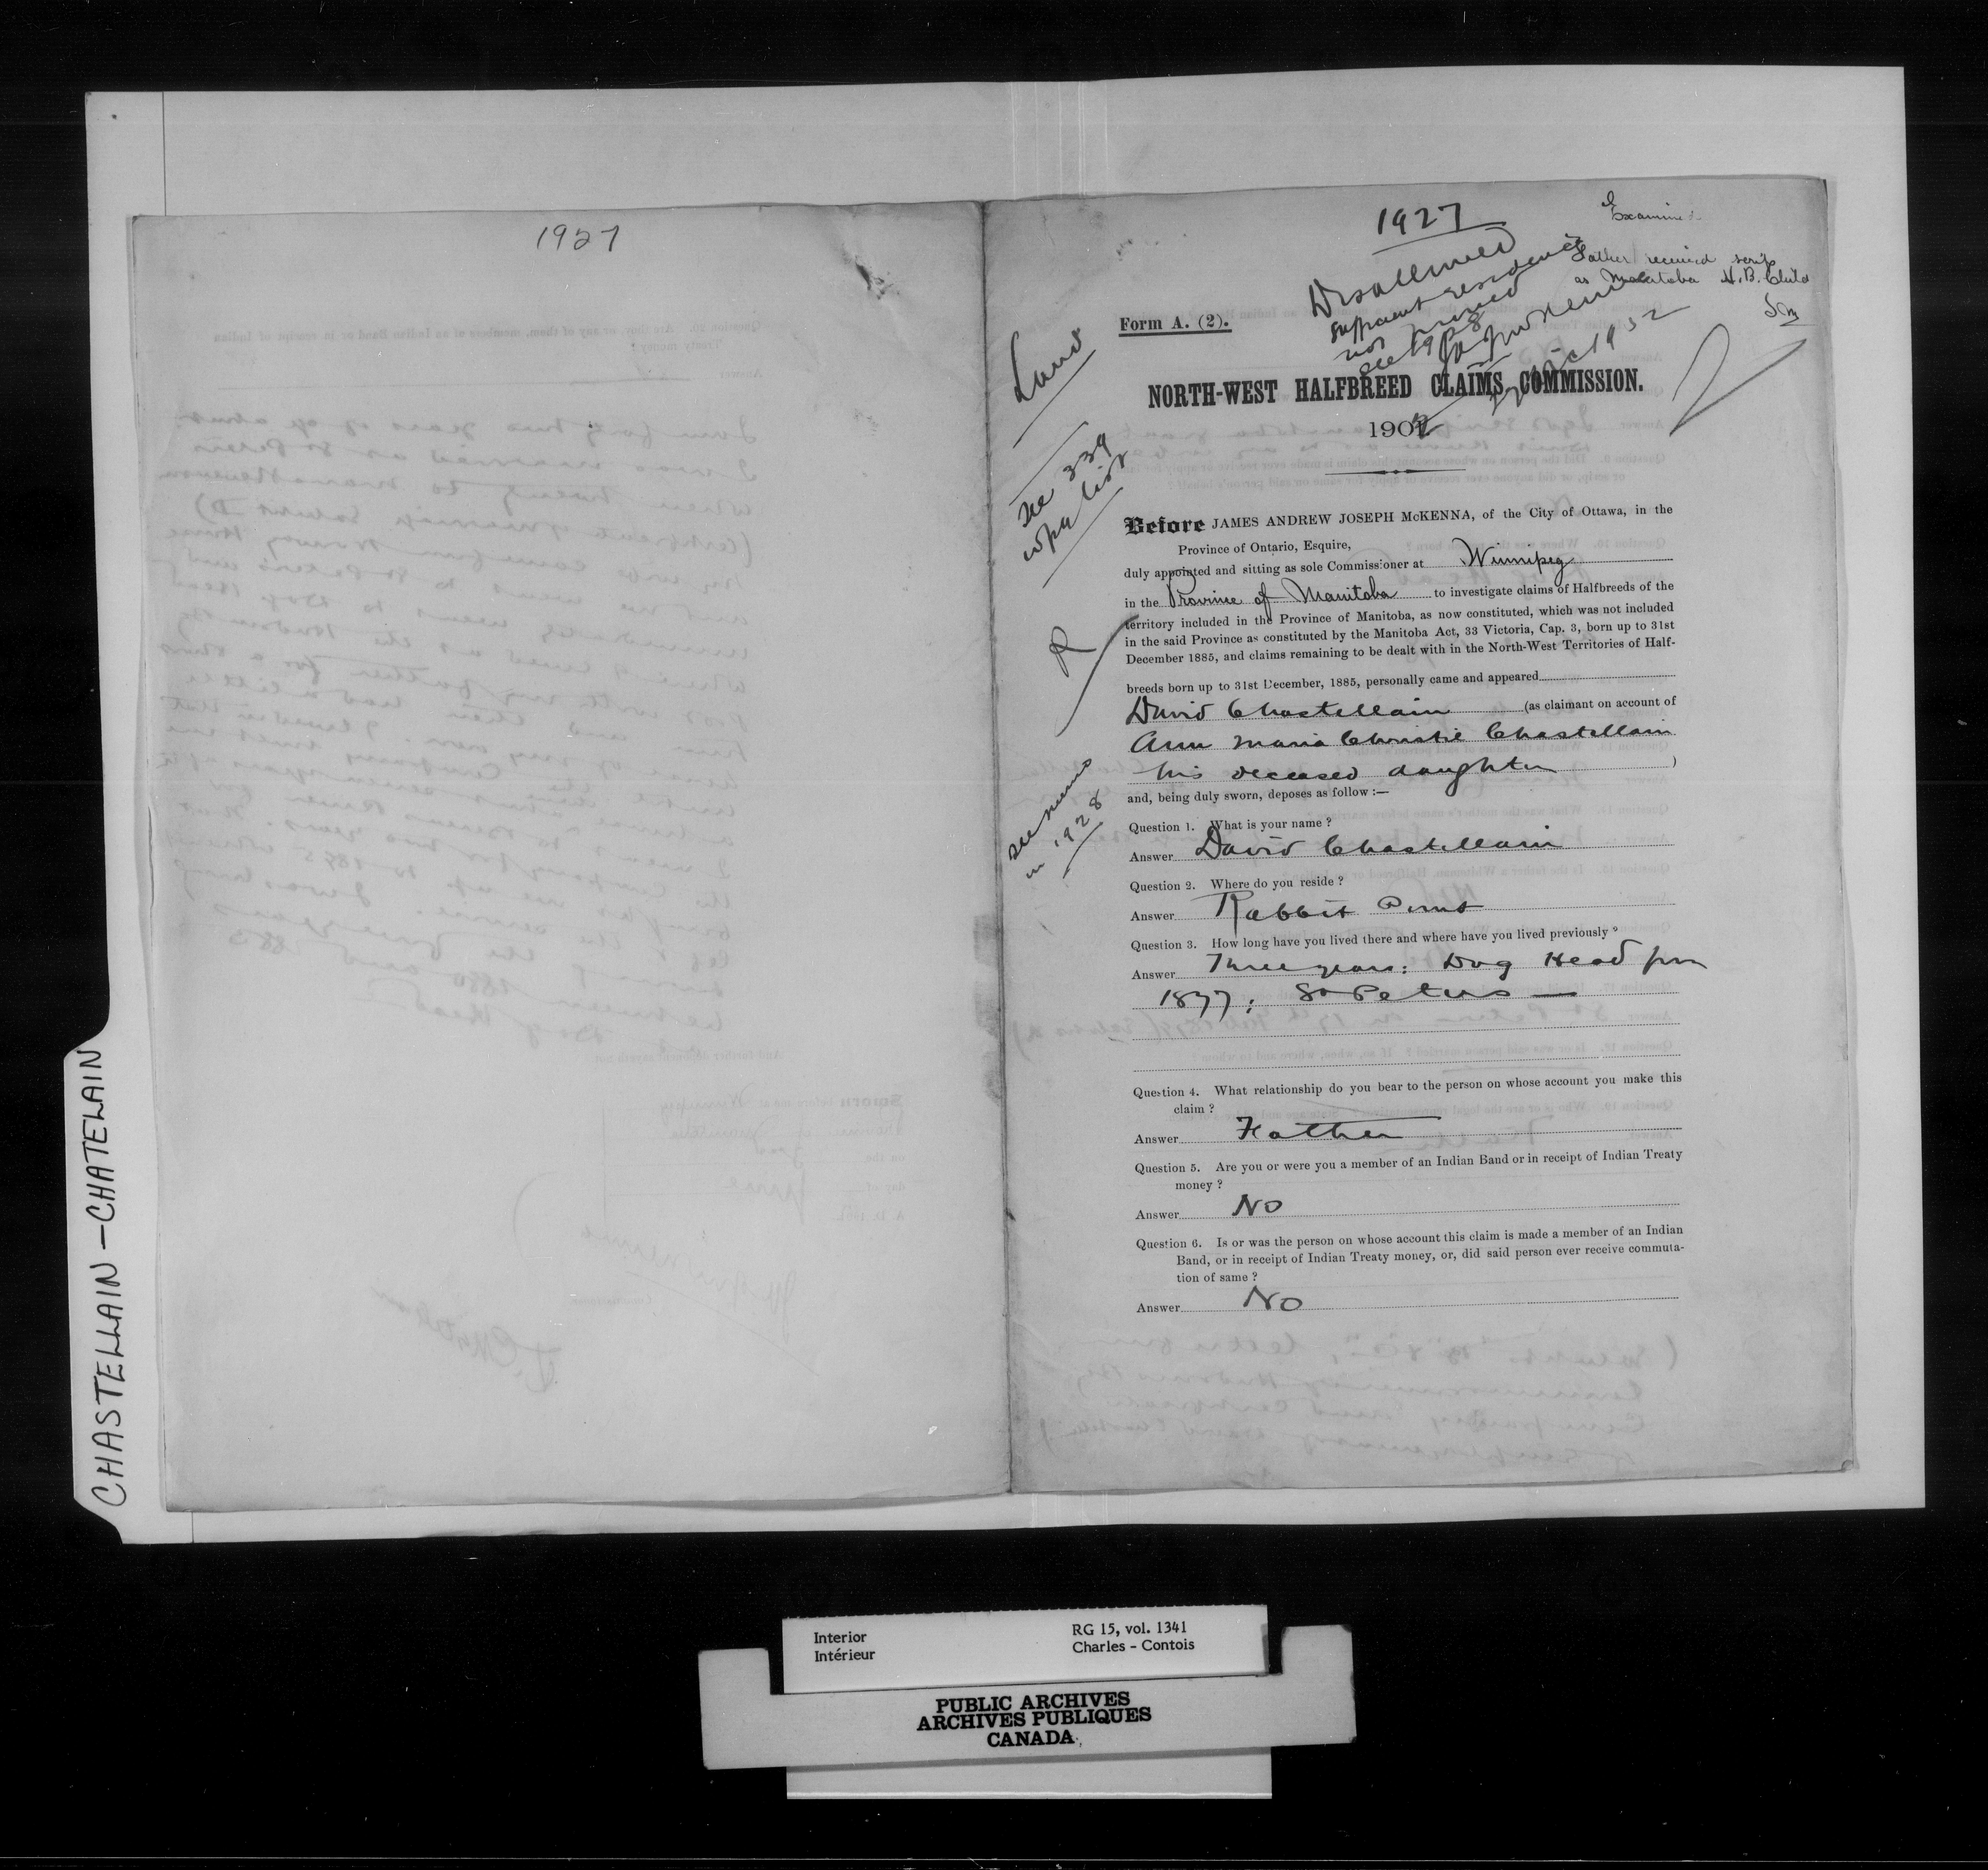 1927
1927
Examined
Father received scrip
as Manitoba H.B. Child
Disallowed
sufficient residence
not proved
see 1928
Form A. (2).
Land
see 339
wpg list
R
see memo
in 1928
NORTH-WEST HALFBREED CLAIMS COMMISSION.
1902
Before JAMES ANDREW JOSEPH McKENNA, of the City of Ottawa, in the
Province of Ontario, Esquire,
duly appointed and sitting as sole Commissioner at Winnipeg
in the Province of Manitoba to investigate claims of Halfbreeds of the
territory included in the Province of Manitoba, as now constituted, which was not included
in the said Province as constituted by the Manitoba Act, 33 Victoria, Cap. 3, born up to 31st
December 1885, and claims remaining to be dealt with in the North-West Territories of Half-
breeds born up to 31st December, 1885, personally came and appeared
David Chastellain (as claimant on account of
Ann Maria Christie Chastellain
his deceased daughter )
and, being duly sworn, deposes as follow :—
Question 1. What is your name ?
Answer David Chastellain
Question 2. Where do you reside ?
Answer Rabbit Point
Question 3. How long have you lived there and where have you lived previously ?
Answer Three years: Dog Head from
1877; St Peters —
Question 4. What relationship do you bear to the person on whose account you make this
claim ?
Answer Father
Question 5. Are you or were you a member of an Indian Band or in receipt of Indian Treaty
money ?
Answer No
Question 6. Is or was the person on whose account this claim is made a member of an Indian
Band, or in receipt of Indian Treaty money, or, did said person ever receive commuta-
tion of same ?
Answer No
CHASTELLAIN – CHATELAIN
Interior
Intérieur
RG 15, vol. 1341
Charles - Contois
PUBLIC ARCHIVES
ARCHIVES PUBLIQUES
CANADA